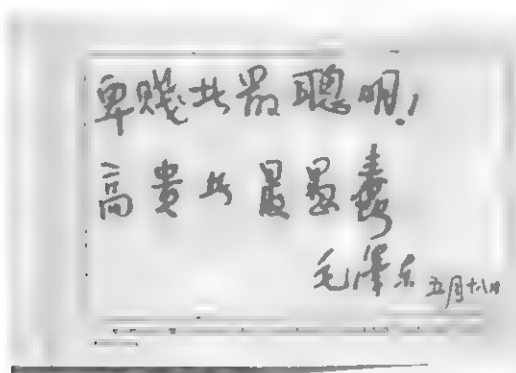 卑贱者最聪明！
高贵者最愚蠢
毛泽东 五月十八日